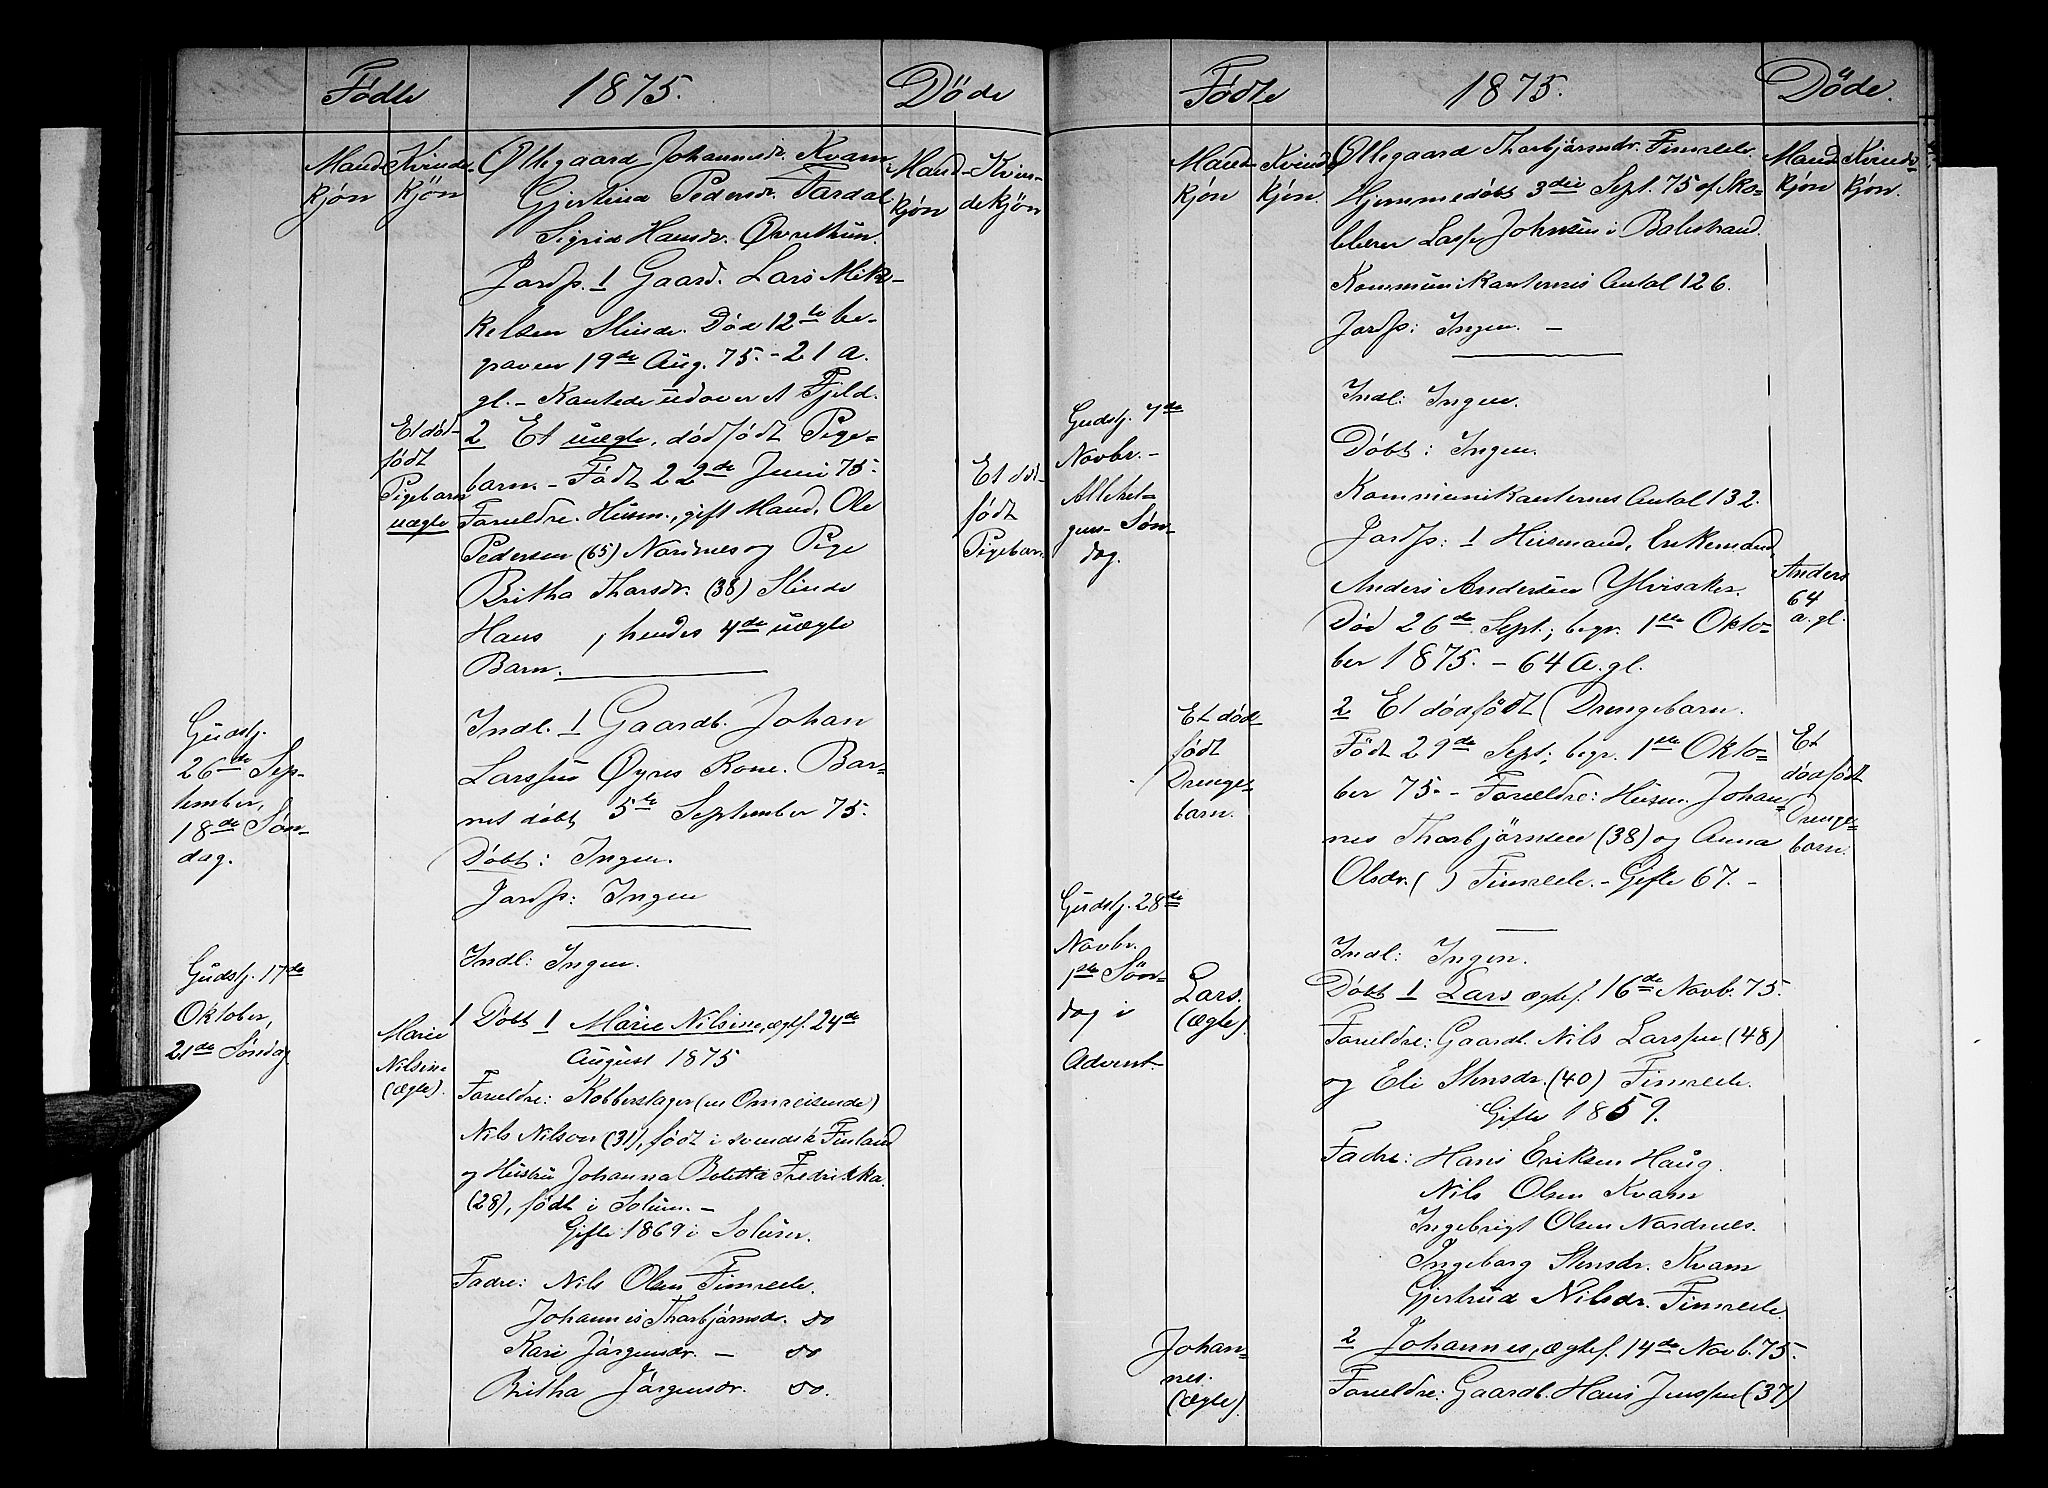 Fødte
1875.
Döde
Mand-
kjøn
Kvinde-
kjön
Mand-
kjøn
Kvin-
dekjøn
Ollegaard Johannesdr. Kvam
Gjertina Pedersdr. Tardal
Sigrid Hansdr. Øvrethun.
Jordf. 1 Gaard. Lars Mik-
kelsen Slinde. Död 12te be-
graven 19de Aug. 75. - 21 a.
gl. - Rantede udover et Fjeld.
Et död-
født
Pigebarn
uægte
2 Et uægte, dödfödt Pige-
barn. - Födt 22de Juni 75.
Forældre. Husm., gift Mand, Ole
Pedersen (65) Nordnes og Pige
Britha Thorsdr. (38) Slinde
Haus , hendes 4de uægte
Barn.
Et död-
født
Pigebarn.
Gudstj.
26de Sep-
tember,
18de Søn-
dag.
Indl. 1 Gaardb. Johan
Larssens Øyres Kone. Bar-
net døbt 5te September 75.
Døbt: Ingen.
Jordf: Ingen
Gudstj. 17de
Oktober,
21de Søndag.
Indl: Ingen.
Marie
Nilsine
(ægte).
1 Døbt 1 Marie Nilsine, ægtef. 24de
August 1875
Forældre: Kobberslager (en Omreisende)
Nils Nilsen (31), født i svensk Finland
og Hustru Johanna Boletta Fredrikka
(28), født i Solum. -
Gifte 1869 i Solum.
Fadre: Nils Olsen Fimreite.
Johannes Thorbjørnsdr. do
Kari Jörgensdr. - do
Britha Jörgensdr. do.
Fødte
1875.
Döde.
Mand-
kjøn
Kvinde-
kjön.
Mand-
kjön
Kvinde-
kjön.
Ollegaard Thorbjörnsdr. Fimreite.
Hjemmedøbt 3die Sept. 75 af Sko-
lelærer Lasse Johnsen i Balestrand.
Kommunikanternes Antal 126.
Jordf: Ingen. -
Gudstj. 7de
Novbr. -
Allehel-
gens Søn-
dag.
Indl: Ingen.
Døbt: Ingen.
Kommunikanternes Antal 132.
Jordf: 1 Husmand, Enkemand,
Anders Andersen Ylvisaker.
Död 26de Sept.; begr. 1ste Okto-
ber 1875. - 64 A. gl.
Anders
64
a. gl.
Et død-
født
Drenge-
barn.
2 Et dødfødt Drengebarn.
Født 29de Sept; begr. 1ste Okto-
ber 75. - Forældre: Husm. Johan-
nes Thorbjörnsen (38) og Anna
Olsdr. ( ) Fimreite. - Gifte 67. -
Et
dødfødt
Drenge-
barn.
Gudstj. 28de
Novbr.
1ste Søn-
dag i
Advent.
Indl: Ingen.
Lars.
(ægte).
Døbt 1 Lars ægtef. 16de Novb. 75.
Forældre: Gaardb. Nils Larssen (48)
og Eli Stensdr. (40) Fimreite.
Gifte 1859.
Fadre: Hans Eriksen Haug.
Nils Olsen Kvam
Ingebrigt Olsen Nordnes.
Ingeborg Stensdr. Kvam
Gjertrud Nilsdr. Fimreite.
Johan-
nes.
(ægte).
2 Johannes, ægtef. 14de Novb. 75.
Forældre: Gaardb. Hans Jenssen (37)